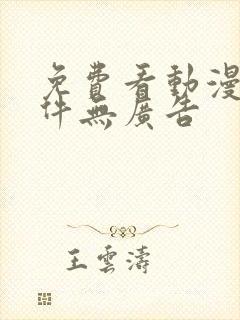 免費看動漫
件無廣告
王雲濤